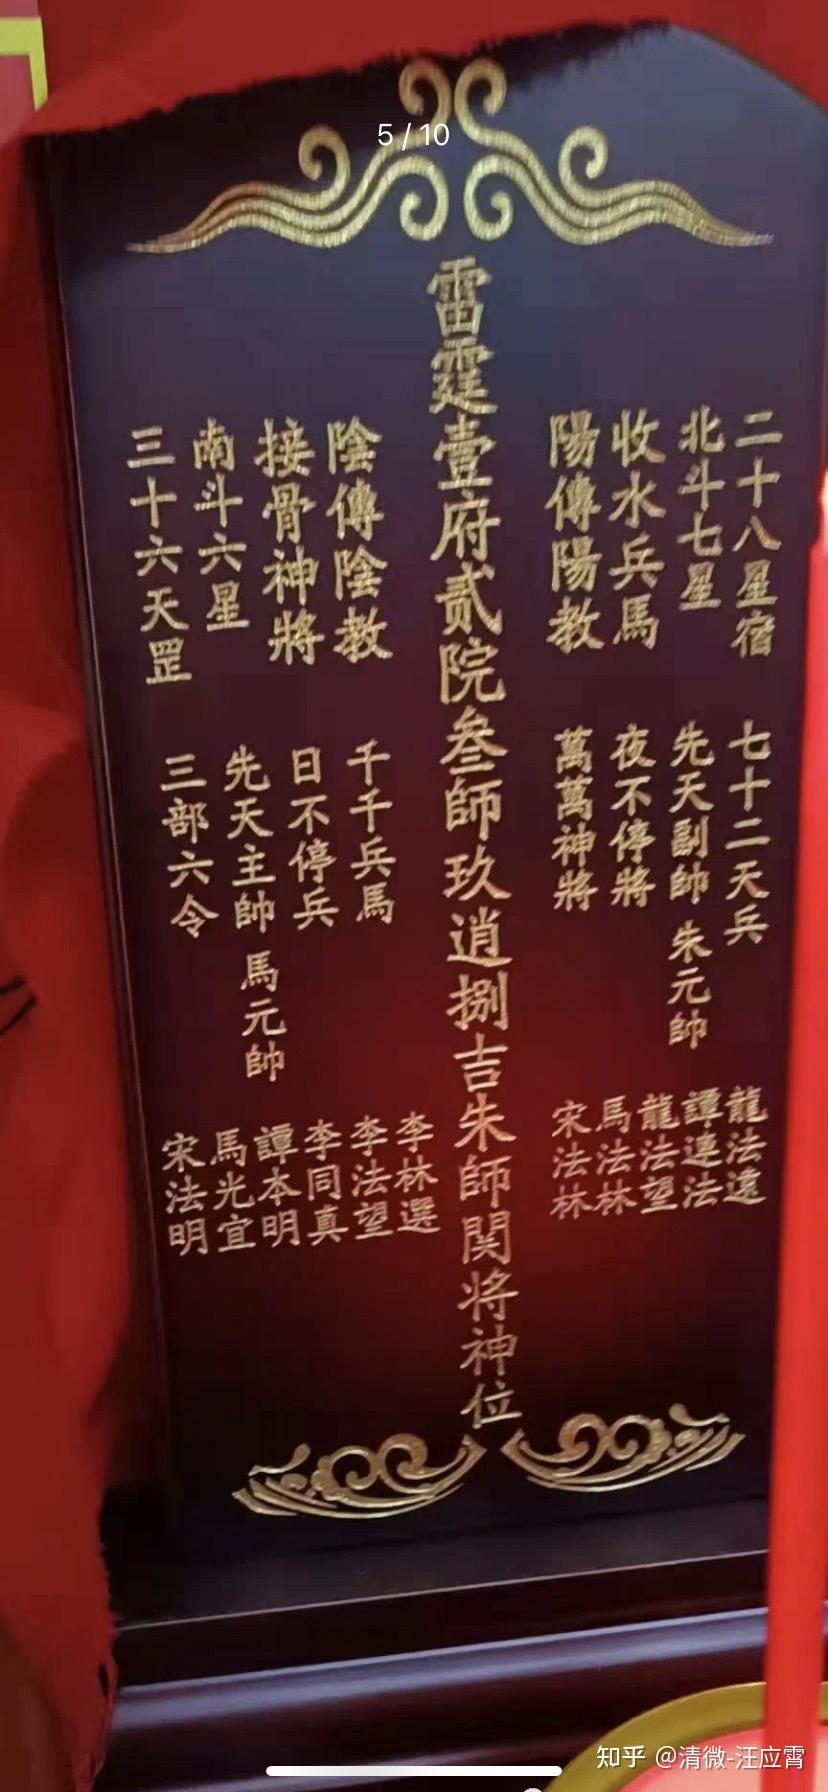 5 / 10
雷霆壹府贰院叁師玖逍捌吉朱師関将神位
二十八星宿
北斗七星
收水兵馬
陽傳陽教
陰傳陰教
接骨神將
南斗六星
三十六天罡
七十二天兵
先天副帥 朱元帥
夜不停將
萬萬神將
千千兵馬
日不停兵
先天主帥 馬元帥
三部六令
龍法遠
譚連法
龍法望
馬法林
宋法林
李林選
李法望
李同真
譚本明
馬光宜
宋法明
知乎 @清微-汪应霄